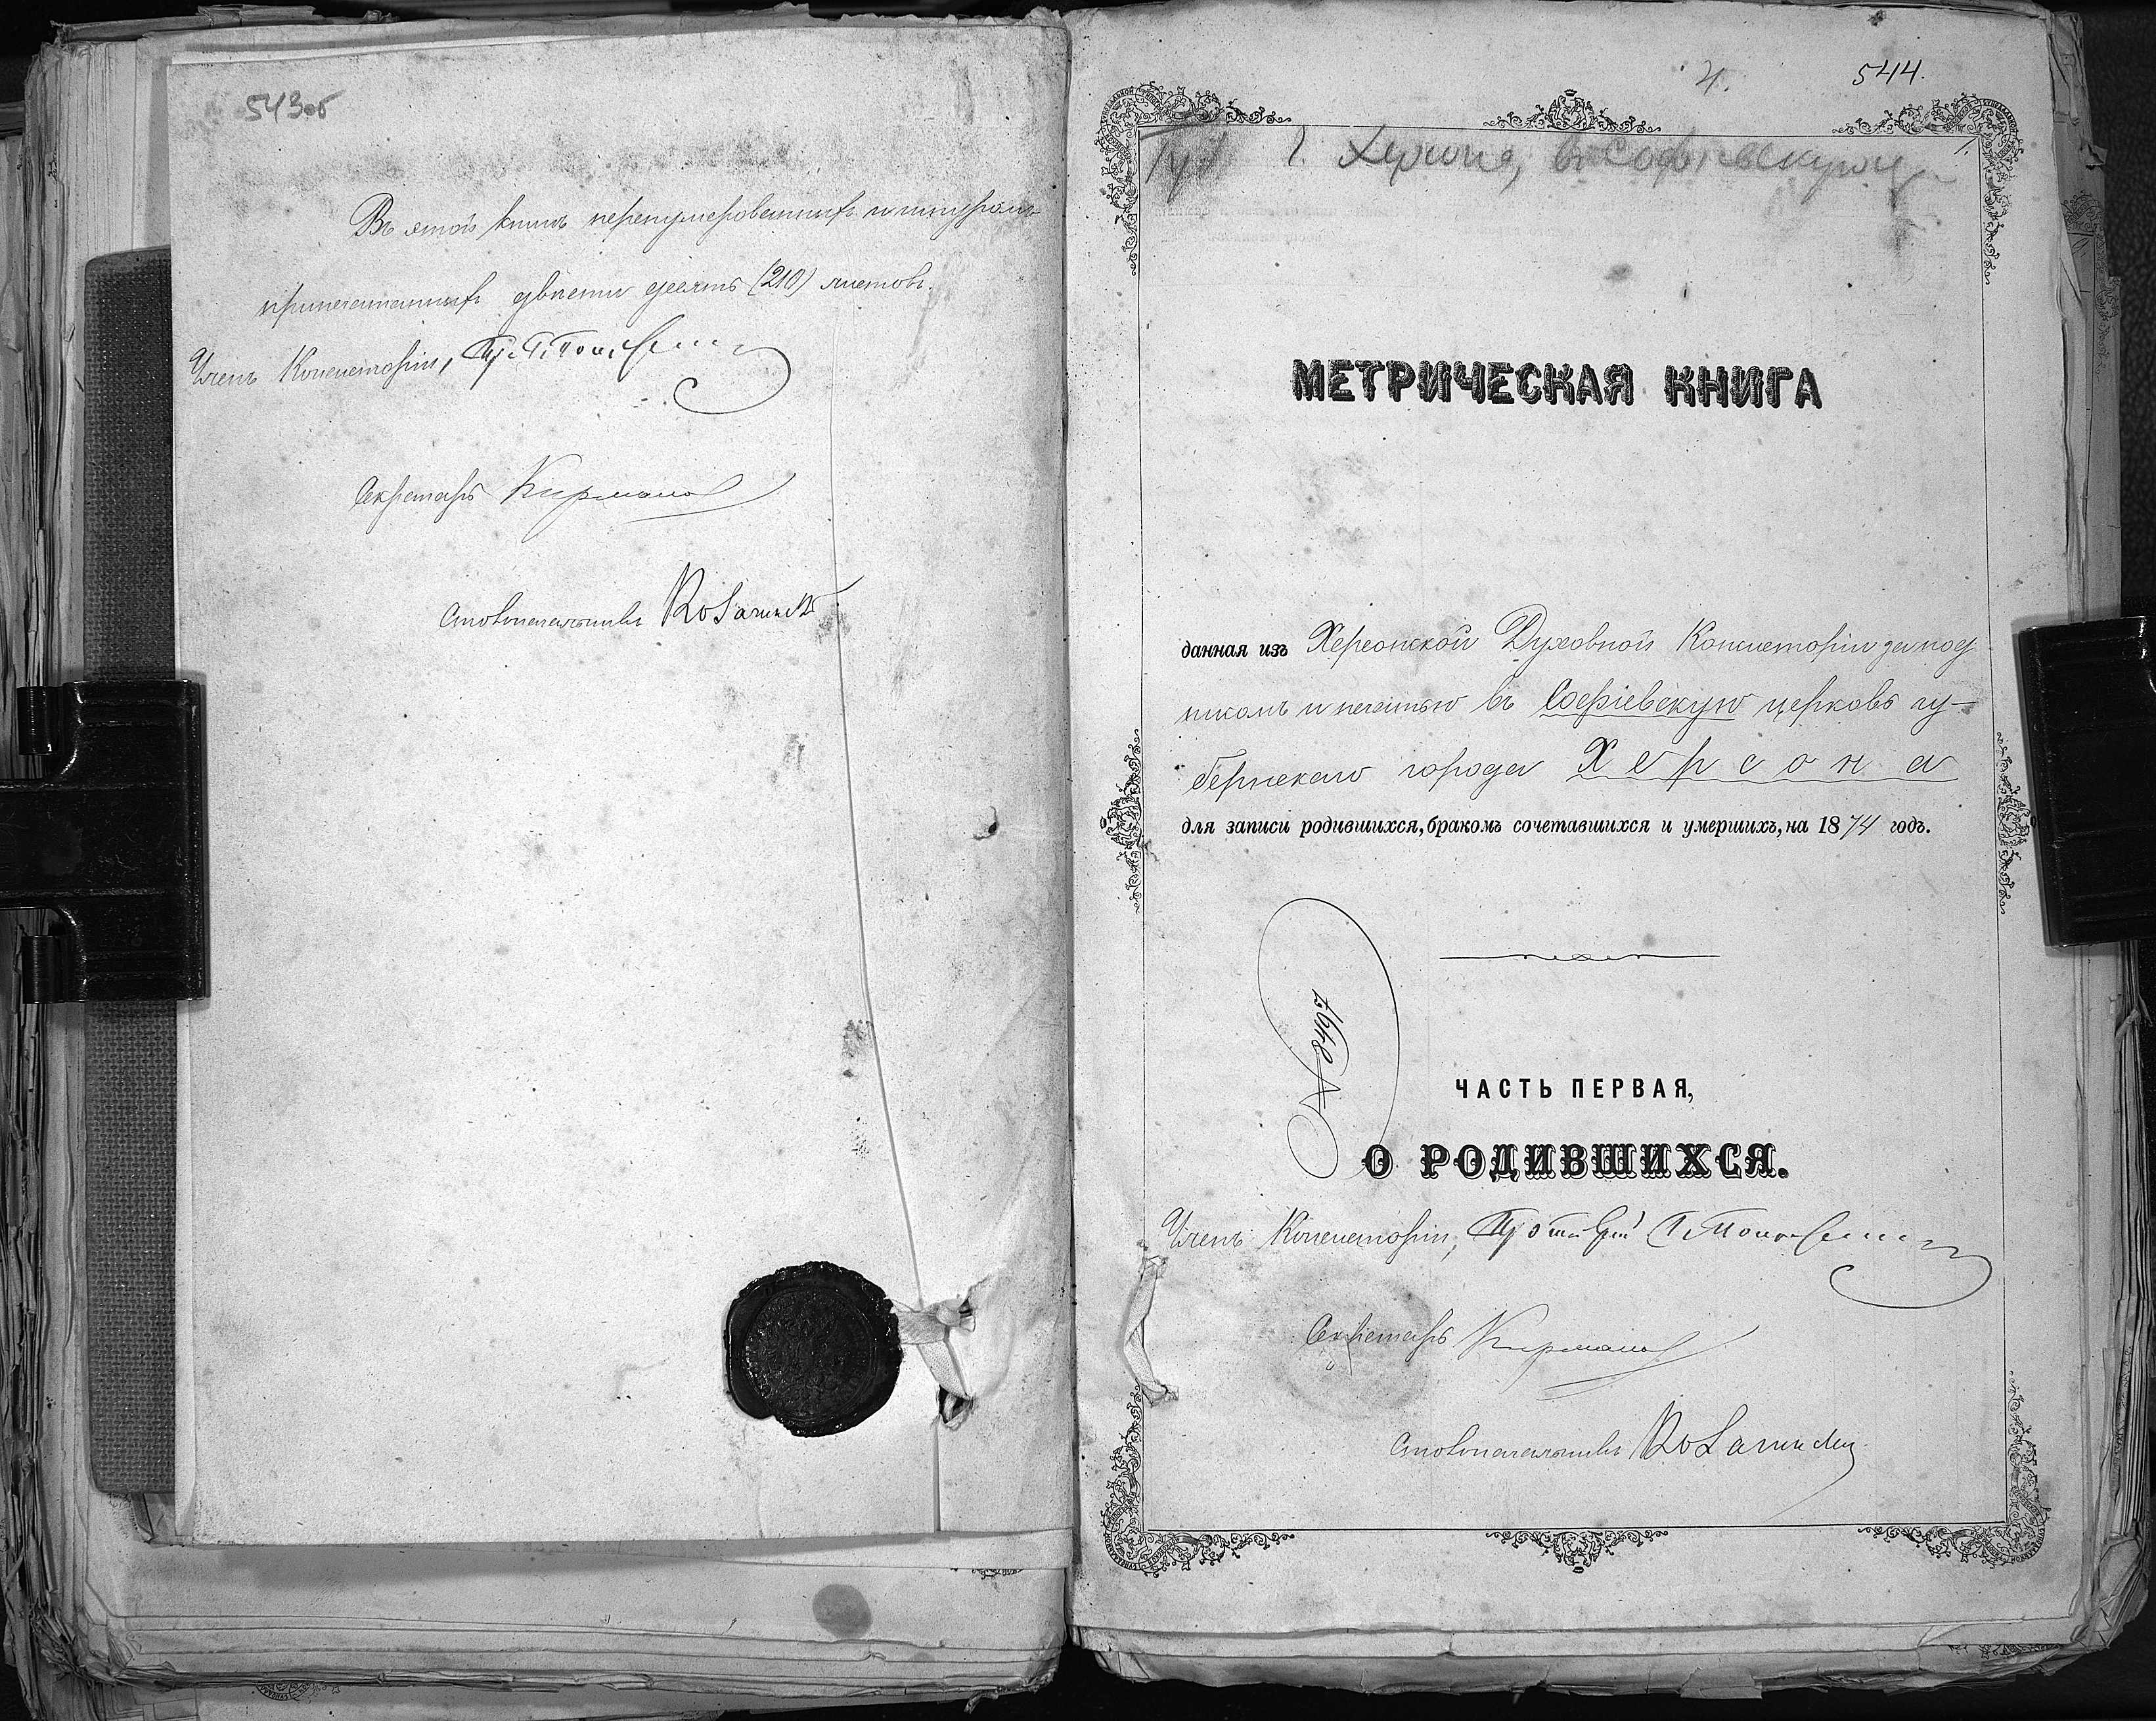 543об
Въ этой книгѣ перенумерованныхъ и шнуромъ
припечатанныхъ двѣсти десять (210) листовъ.
Членъ Консисторіи,
Секретарь
Столоначальникъ
4. 544.
г. Херсона, в Софіевскую
МЕТРИЧЕСКАЯ КНИГА
данная изъ Херсонской Духовной Консисторіи за под
писомъ и печатью въ Софіевскую церковь гу-
бернскаго города Херсона
для записи родившихся, бракомъ сочетавшихся и умершихъ, на 1874 годъ.
№ 8497
ЧАСТЬ ПЕРВАЯ,
О РОДИВШИХСЯ.
Членъ Консисторіи, Протоіерей
Секретарь
Столоначальникъ